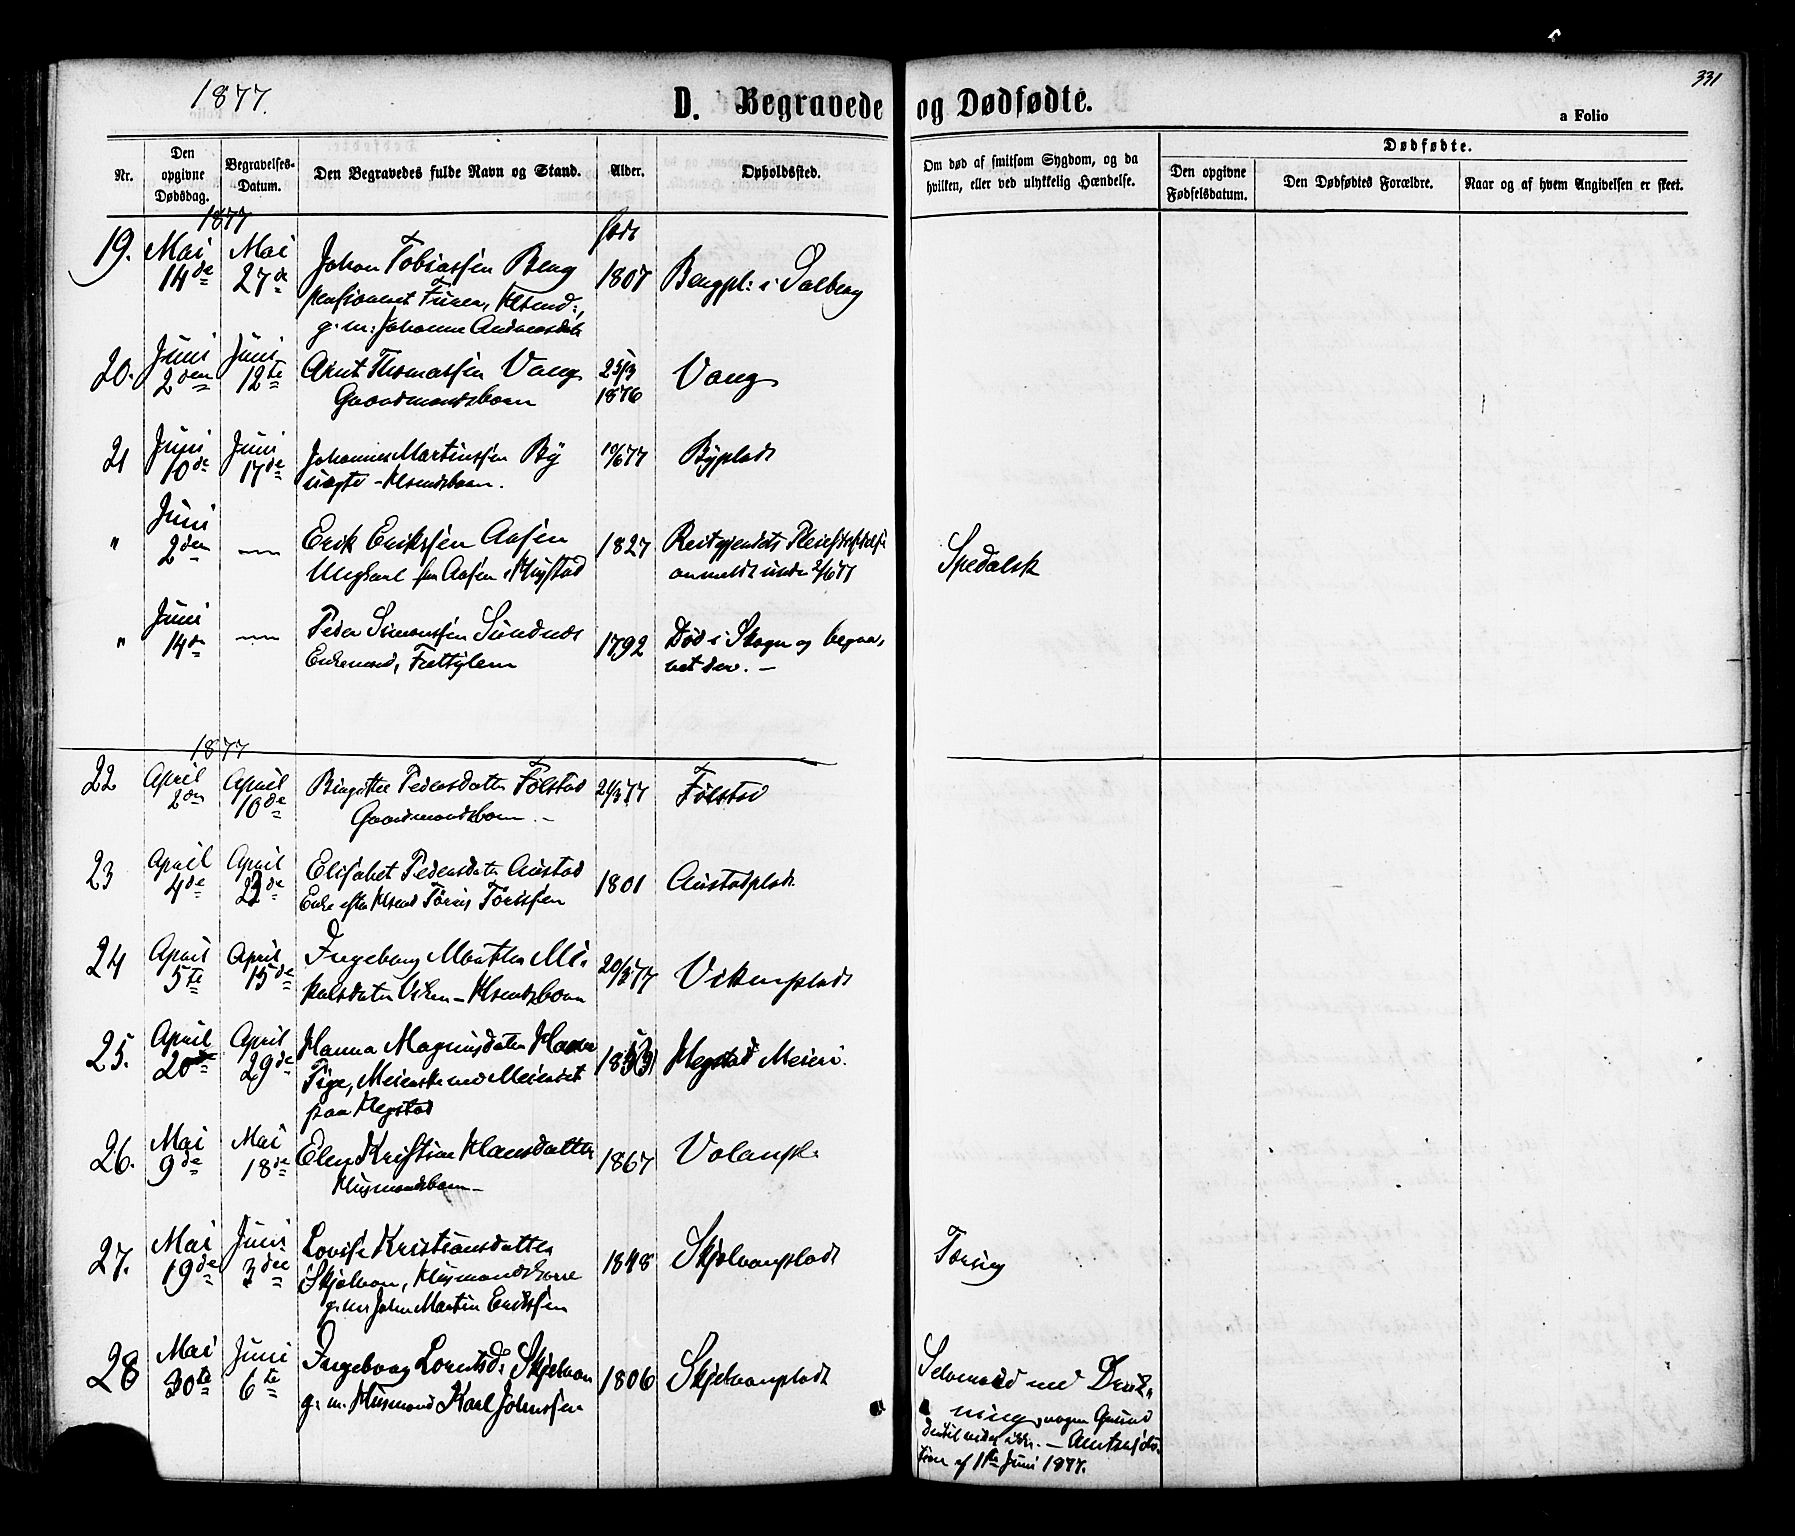 331
1877.
D. Begravede og Dødfødte.
a Folio
Nr.
Den opgivne Dødsdag.
Begravelses-Datum.
Den Begravedes fulde Navn og Stand.
Alder.
Opholdssted.
Om død af smitsom Sygdom, og da hvilken, eller ved ulykkelig Hændelse.
Dødfødte.
Den opgivne Fødselsdatum.
Den Dødfødtes Forældre.
Naar og af hvem Angivelsen er skeet.
1877
19. Mai 14de Mai 27de Johan Tobiassen Berg født 1807 Bergpl: i Salberg
pensioneret Furer, Hsmd:,
g. m: Johanna Andreasdatr
20. Juni 2den Juni 12te Arnt Thomassen Vang 25/3 1876 Vang
Gaardmandsbarn
21 Juni 10de Juni 17de Johannes Martinssen By 10/6 77 Byplads
uægte - Hsmdsbarn.
" Juni 2den — Erik Erikssen Aasen 1827 Reitgjerdets Pleiestiftelse Spedalsk
Ungkarl fra Aasen, anmeldt under 2/6 77
" Juni 14de — Peder Simonssen Sundnes 1792 Død i Skogn og begra-
Enkemand, vet der. —
1877
22 April 2den April 10de Birgitte Pedersdatter Følstad 21/3 77 Følstad
Gaardmandsbarn —
23 April 4de April 22de Elisabet Pedersdatr Austad 1801 Austadplads
Enke efter Hsmd Tørris Torrissen
24 April 5te April 15de Ingeborg Martha Mi- 20/3 77 Vikenplads
kalsdatter Viken - Hsmdsbarn
25. April 20de April 29de Hanna Magnusdatter 1853 Hegstad Meieri.
Pige, Meierske ved Meieriet
paa Hegstad
26. Mai 9de Mai 18de Elen Kristine Hansdatter 1867 Volanpl.
Husmandsbarn —
27. Mai 19de Juni 3die Lovise Kristiansdatter 1848 Skjelvanplads Tæring
Skjelvan, Husmandskone
g. m. John Martin Erikssen
28 Mai 30te Juni 6te Ingeborg Lorntsd: Skjelvan 1806 Skjelvanplads Selvmord ved Druk-
g. m. Husmand Karl Johnssen ning, nogen Grund
dertil vides ikke. —
af 1ste Juni 1877.